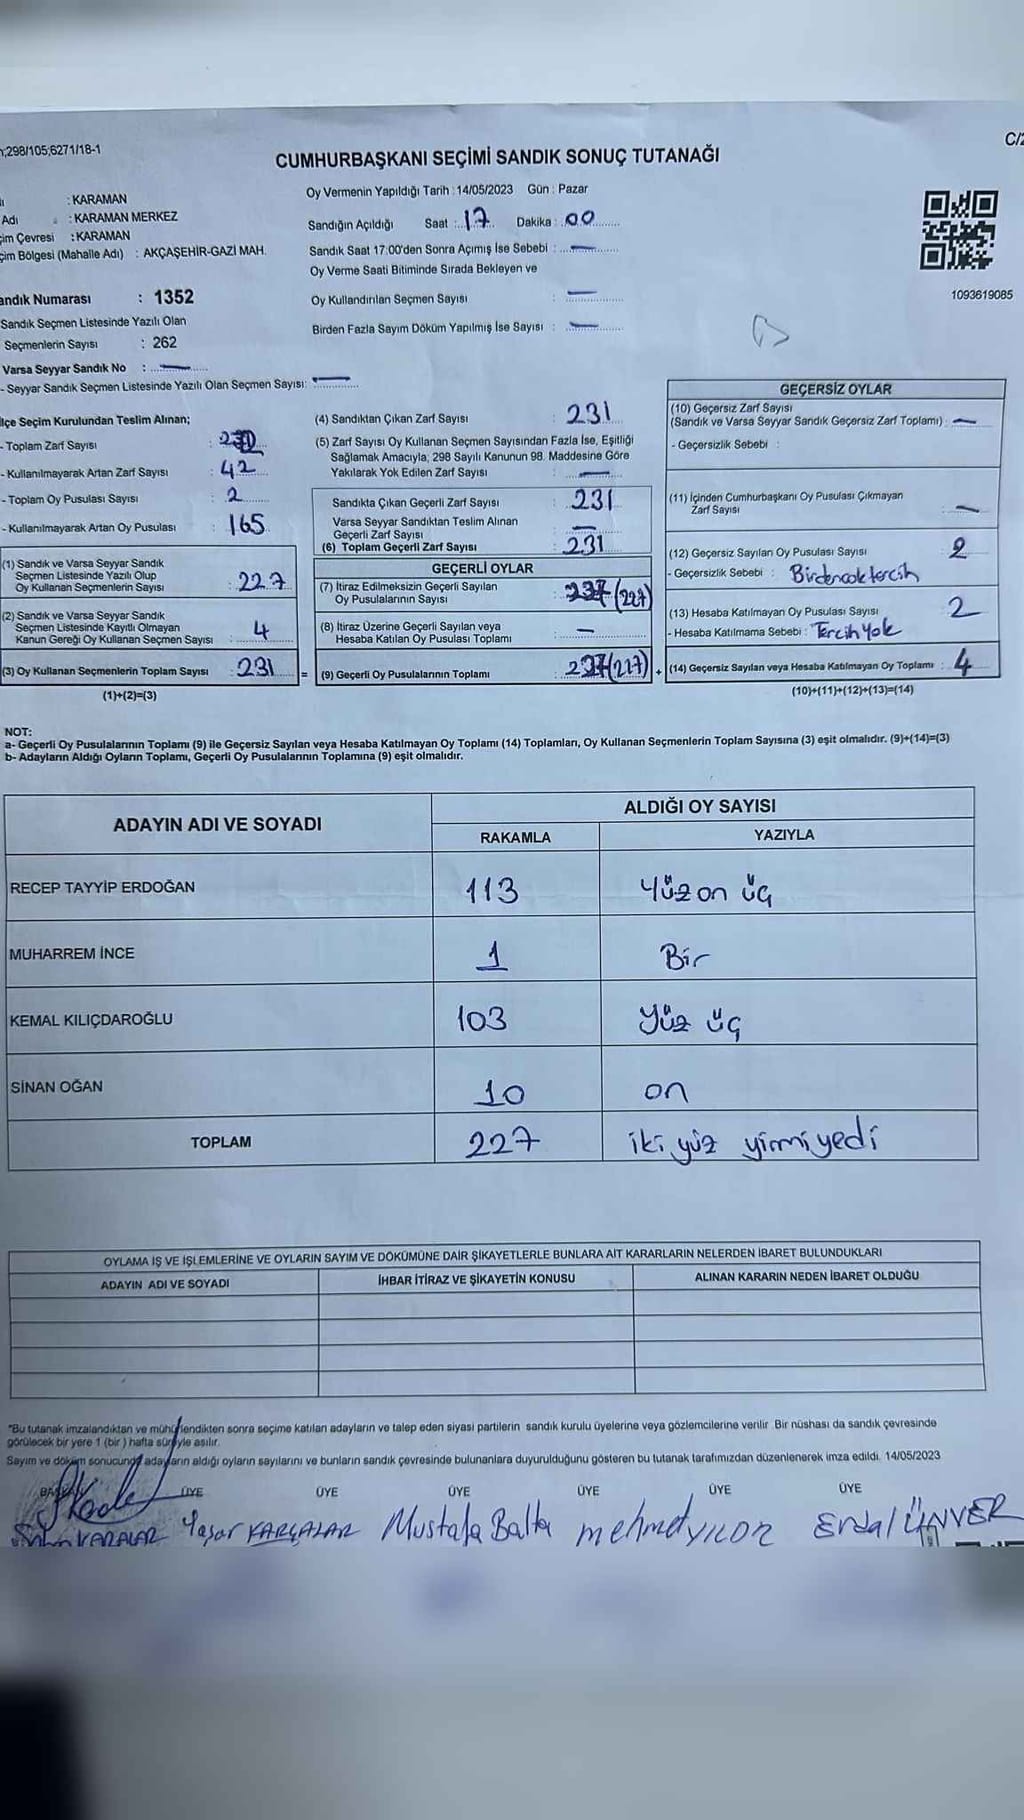 298/105;6271/18-1
C/2
CUMHURBAŞKANI SEÇİMİ SANDIK SONUÇ TUTANAĞI
: KARAMAN
Adı : KARAMAN MERKEZ
çim Çevresi : KARAMAN
çim Bölgesi (Mahalle Adı) : AKÇAŞEHİR-GAZİ MAH.
Oy Vermenin Yapıldığı Tarih : 14/05/2023 Gün : Pazar
Sandığın Açıldığı Saat : 17 Dakika : 00
Sandık Saat 17:00'den Sonra Açımış İse Sebebi : —
Oy Verme Saati Bitiminde Sırada Bekleyen ve
Oy Kullandırılan Seçmen Sayısı : —
Birden Fazla Sayım Döküm Yapılmış İse Sayısı : —
1093619085
andık Numarası : 1352
Sandık Seçmen Listesinde Yazılı Olan
Seçmenlerin Sayısı : 262
Varsa Seyyar Sandık No : —
- Seyyar Sandık Seçmen Listesinde Yazılı Olan Seçmen Sayısı: —
İlçe Seçim Kurulundan Teslim Alınan;
- Toplam Zarf Sayısı :
- Kullanılmayarak Artan Zarf Sayısı : 42
- Toplam Oy Pusulası Sayısı : 2
- Kullanılmayarak Artan Oy Pusulası : 165
(1) Sandık ve Varsa Seyyar Sandık
Seçmen Listesinde Yazılı Olup
Oy Kullanan Seçmenlerin Sayısı : 227
(2) Sandık ve Varsa Seyyar Sandık
Seçmen Listesinde Kayıtlı Olmayan
Kanun Gereği Oy Kullanan Seçmen Sayısı : 4
(3) Oy Kullanan Seçmenlerin Toplam Sayısı : 231 =
(1)+(2)=(3)
(4) Sandıktan Çıkan Zarf Sayısı : 231
(5) Zarf Sayısı Oy Kullanan Seçmen Sayısından Fazla İse, Eşitliği
Sağlamak Amacıyla; 298 Sayılı Kanunun 98. Maddesine Göre
Yakılarak Yok Edilen Zarf Sayısı : —
Sandıkta Çıkan Geçerli Zarf Sayısı : 231
Varsa Seyyar Sandıktan Teslim Alınan
Geçerli Zarf Sayısı : —
(6) Toplam Geçerli Zarf Sayısı : 231
GEÇERLİ OYLAR
(7) İtiraz Edilmeksizin Geçerli Sayılan
Oy Pusulalarının Sayısı : (227)
(8) İtiraz Üzerine Geçerli Sayılan veya
Hesaba Katılan Oy Pusulası Toplamı : —
(9) Geçerli Oy Pusulalarının Toplamı : (227) +
GEÇERSİZ OYLAR
(10) Geçersiz Zarf Sayısı
(Sandık ve Varsa Seyyar Sandık Geçersiz Zarf Toplamı) : —
- Geçersizlik Sebebi :
(11) İçinden Cumhurbaşkanı Oy Pusulası Çıkmayan
Zarf Sayısı : —
(12) Geçersiz Sayılan Oy Pusulası Sayısı : 2
- Geçersizlik Sebebi : Birdencok tercih
(13) Hesaba Katılmayan Oy Pusulası Sayısı : 2
- Hesaba Katılmama Sebebi : Tercih Yok
(14) Geçersiz Sayılan veya Hesaba Katılmayan Oy Toplamı : 4
(10)+(11)+(12)+(13)=(14)
NOT:
a- Geçerli Oy Pusulalarının Toplamı (9) ile Geçersiz Sayılan veya Hesaba Katılmayan Oy Toplamı (14) Toplamları, Oy Kullanan Seçmenlerin Toplam Sayısına (3) eşit olmalıdır. (9)+(14)=(3)
b- Adayların Aldığı Oyların Toplamı, Geçerli Oy Pusulalarının Toplamına (9) eşit olmalıdır.
ADAYIN ADI VE SOYADI
ALDIĞI OY SAYISI
RAKAMLA YAZIYLA
RECEP TAYYİP ERDOĞAN 113 Yüz on üç
MUHARREM İNCE 1 Bir
KEMAL KILIÇDAROĞLU 103 Yüz üç
SİNAN OĞAN 10 on
TOPLAM 227 iki yüz yirmi yedi
OYLAMA İŞ VE İŞLEMLERİNE VE OYLARIN SAYIM VE DÖKÜMÜNE DAİR ŞİKAYETLERLE BUNLARA AİT KARARLARIN NELERDEN İBARET BULUNDUKLARI
ADAYIN ADI VE SOYADI İHBAR İTİRAZ VE ŞİKAYETİN KONUSU ALINAN KARARIN NEDEN İBARET OLDUĞU
"Bu tutanak imzalandıktan ve mühürlendikten sonra seçime katılan adayların ve talep eden siyasi partilerin sandık kurulu üyelerine veya gözlemcilerine verilir. Bir nüshası da sandık çevresinde
görülecek bir yere 1 (bir) hafta süreyle asılır.
Sayım ve döküm sonucunda adayların aldığı oyların sayılarını ve bunların sandık çevresinde bulunanlara duyurulduğunu gösteren bu tutanak tarafımızdan düzenlenerek imza edildi. 14/05/2023
BAŞKAN ÜYE ÜYE ÜYE ÜYE ÜYE ÜYE
KARALAR Yaşar KARÇALAR Mustafa Balta mehmet Erdal ÜNVER